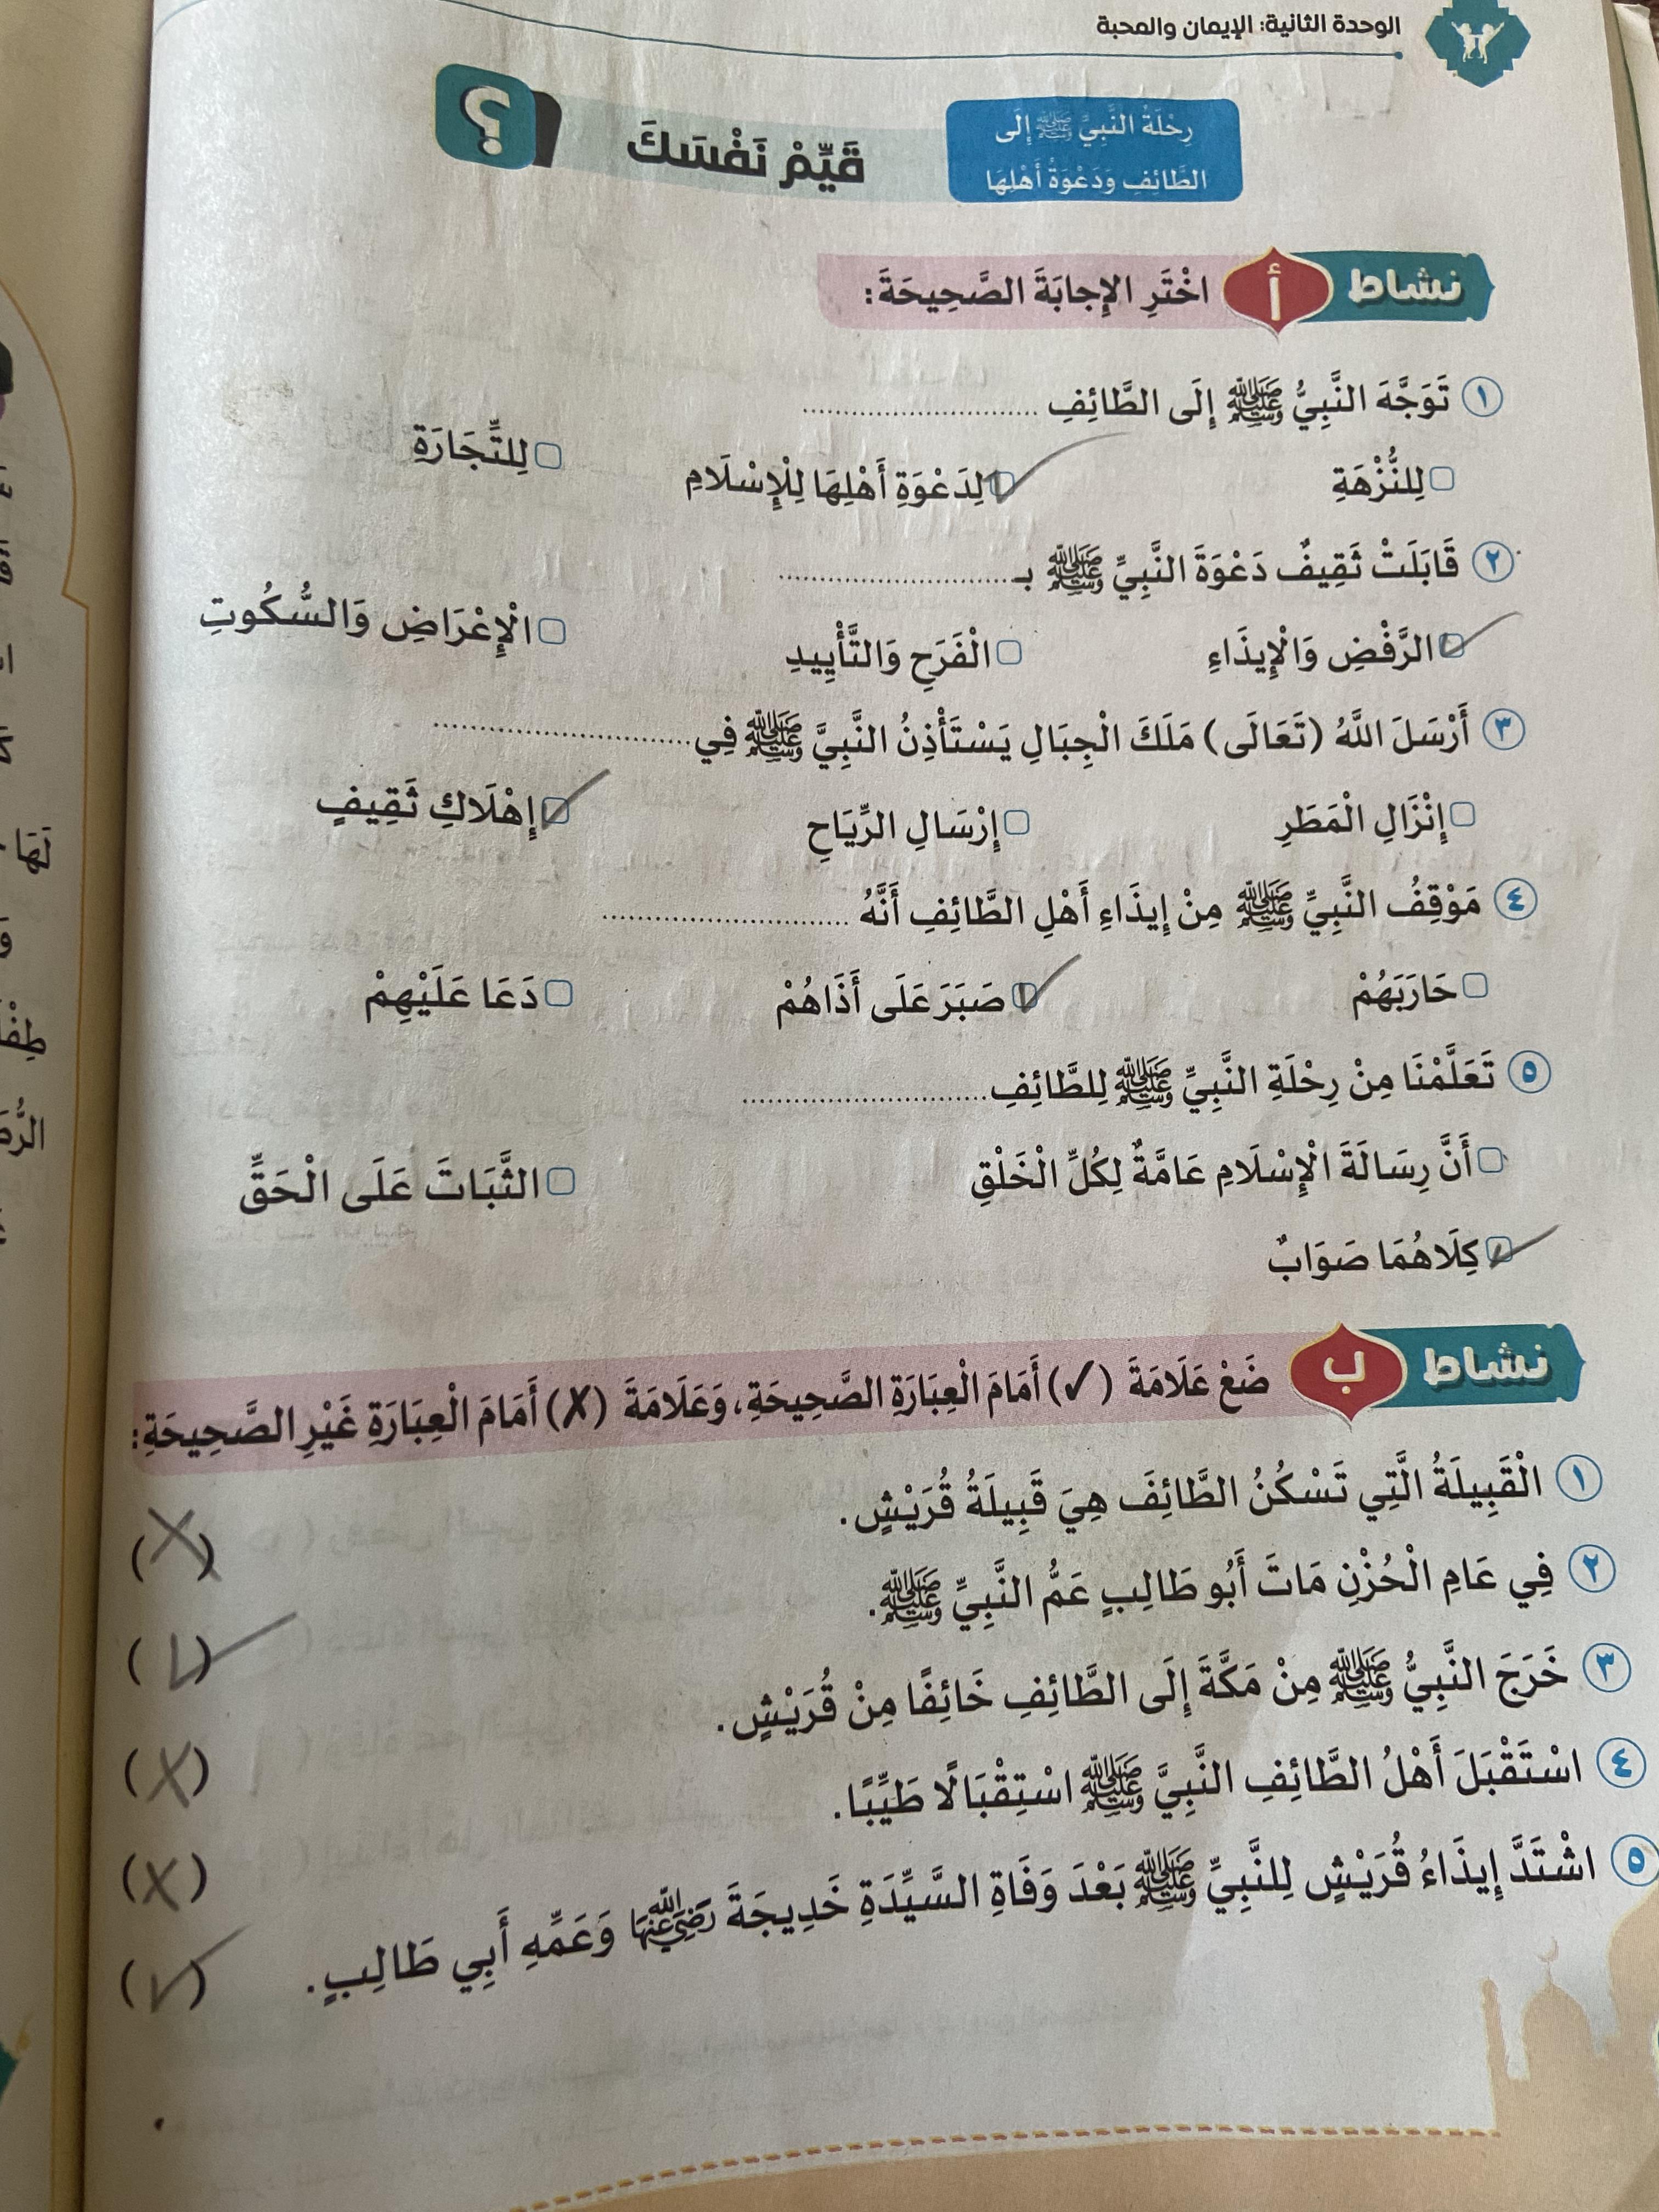 الوحدة الثانية: الإيمان والمحبة
رِحْلَةُ النَّبِيِّ ﷺ إِلَى
الطَّائِفِ وَدَعْوَةُ أَهْلِهَا
قَيِّمْ نَفْسَكَ
؟
نشاط أ اخْتَرِ الإِجابَةَ الصَّحِيحَةَ:
١ تَوَجَّهَ النَّبِيُّ ﷺ إِلَى الطَّائِفِ ..............................
لِلنُّزْهَةِ ✓ لِدَعْوَةِ أَهْلِهَا لِلْإِسْلَامِ لِلتِّجَارَةِ
٢ قَابَلَتْ ثَقِيفٌ دَعْوَةَ النَّبِيِّ ﷺ بـ ..............................
✓ الرَّفْضِ وَالْإِيذَاءِ الْفَرَحِ وَالتَّأْيِيدِ الْإِعْرَاضِ وَالسُّكُوتِ
٣ أَرْسَلَ اللَّهُ (تَعَالَى) مَلَكَ الْجِبَالِ يَسْتَأْذِنُ النَّبِيَّ ﷺ فِي ..............................
إِنْزَالِ الْمَطَرِ إِرْسَالِ الرِّيَاحِ ✓ إِهْلَاكِ ثَقِيفٍ
٤ مَوْقِفُ النَّبِيِّ ﷺ مِنْ إِيذَاءِ أَهْلِ الطَّائِفِ أَنَّهُ ..............................
حَارَبَهُمْ ✓ صَبَرَ عَلَى أَذَاهُمْ دَعَا عَلَيْهِمْ
٥ تَعَلَّمْنَا مِنْ رِحْلَةِ النَّبِيِّ ﷺ لِلطَّائِفِ ..............................
أَنَّ رِسَالَةَ الْإِسْلَامِ عَامَّةٌ لِكُلِّ الْخَلْقِ الثَّبَاتَ عَلَى الْحَقِّ
✓ كِلَاهُمَا صَوَابٌ
نشاط ب ضَعْ عَلَامَةَ (✓) أَمَامَ الْعِبَارَةِ الصَّحِيحَةِ، وَعَلَامَةَ (✗) أَمَامَ الْعِبَارَةِ غَيْرِ الصَّحِيحَةِ:
١ الْقَبِيلَةُ الَّتِي تَسْكُنُ الطَّائِفَ هِيَ قَبِيلَةُ قُرَيْشٍ. (✗)
٢ فِي عَامِ الْحُزْنِ مَاتَ أَبُو طَالِبٍ عَمُّ النَّبِيِّ ﷺ. (✓)
٣ خَرَجَ النَّبِيُّ ﷺ مِنْ مَكَّةَ إِلَى الطَّائِفِ خَائِفًا مِنْ قُرَيْشٍ. (✗)
٤ اسْتَقْبَلَ أَهْلُ الطَّائِفِ النَّبِيَّ ﷺ اسْتِقْبَالًا طَيِّبًا. (✗)
٥ اشْتَدَّ إِيذَاءُ قُرَيْشٍ لِلنَّبِيِّ ﷺ بَعْدَ وَفَاةِ السَّيِّدَةِ خَدِيجَةَ رَضِيَ اللَّهُ عَنْهَا وَعَمِّهِ أَبِي طَالِبٍ. (✓)